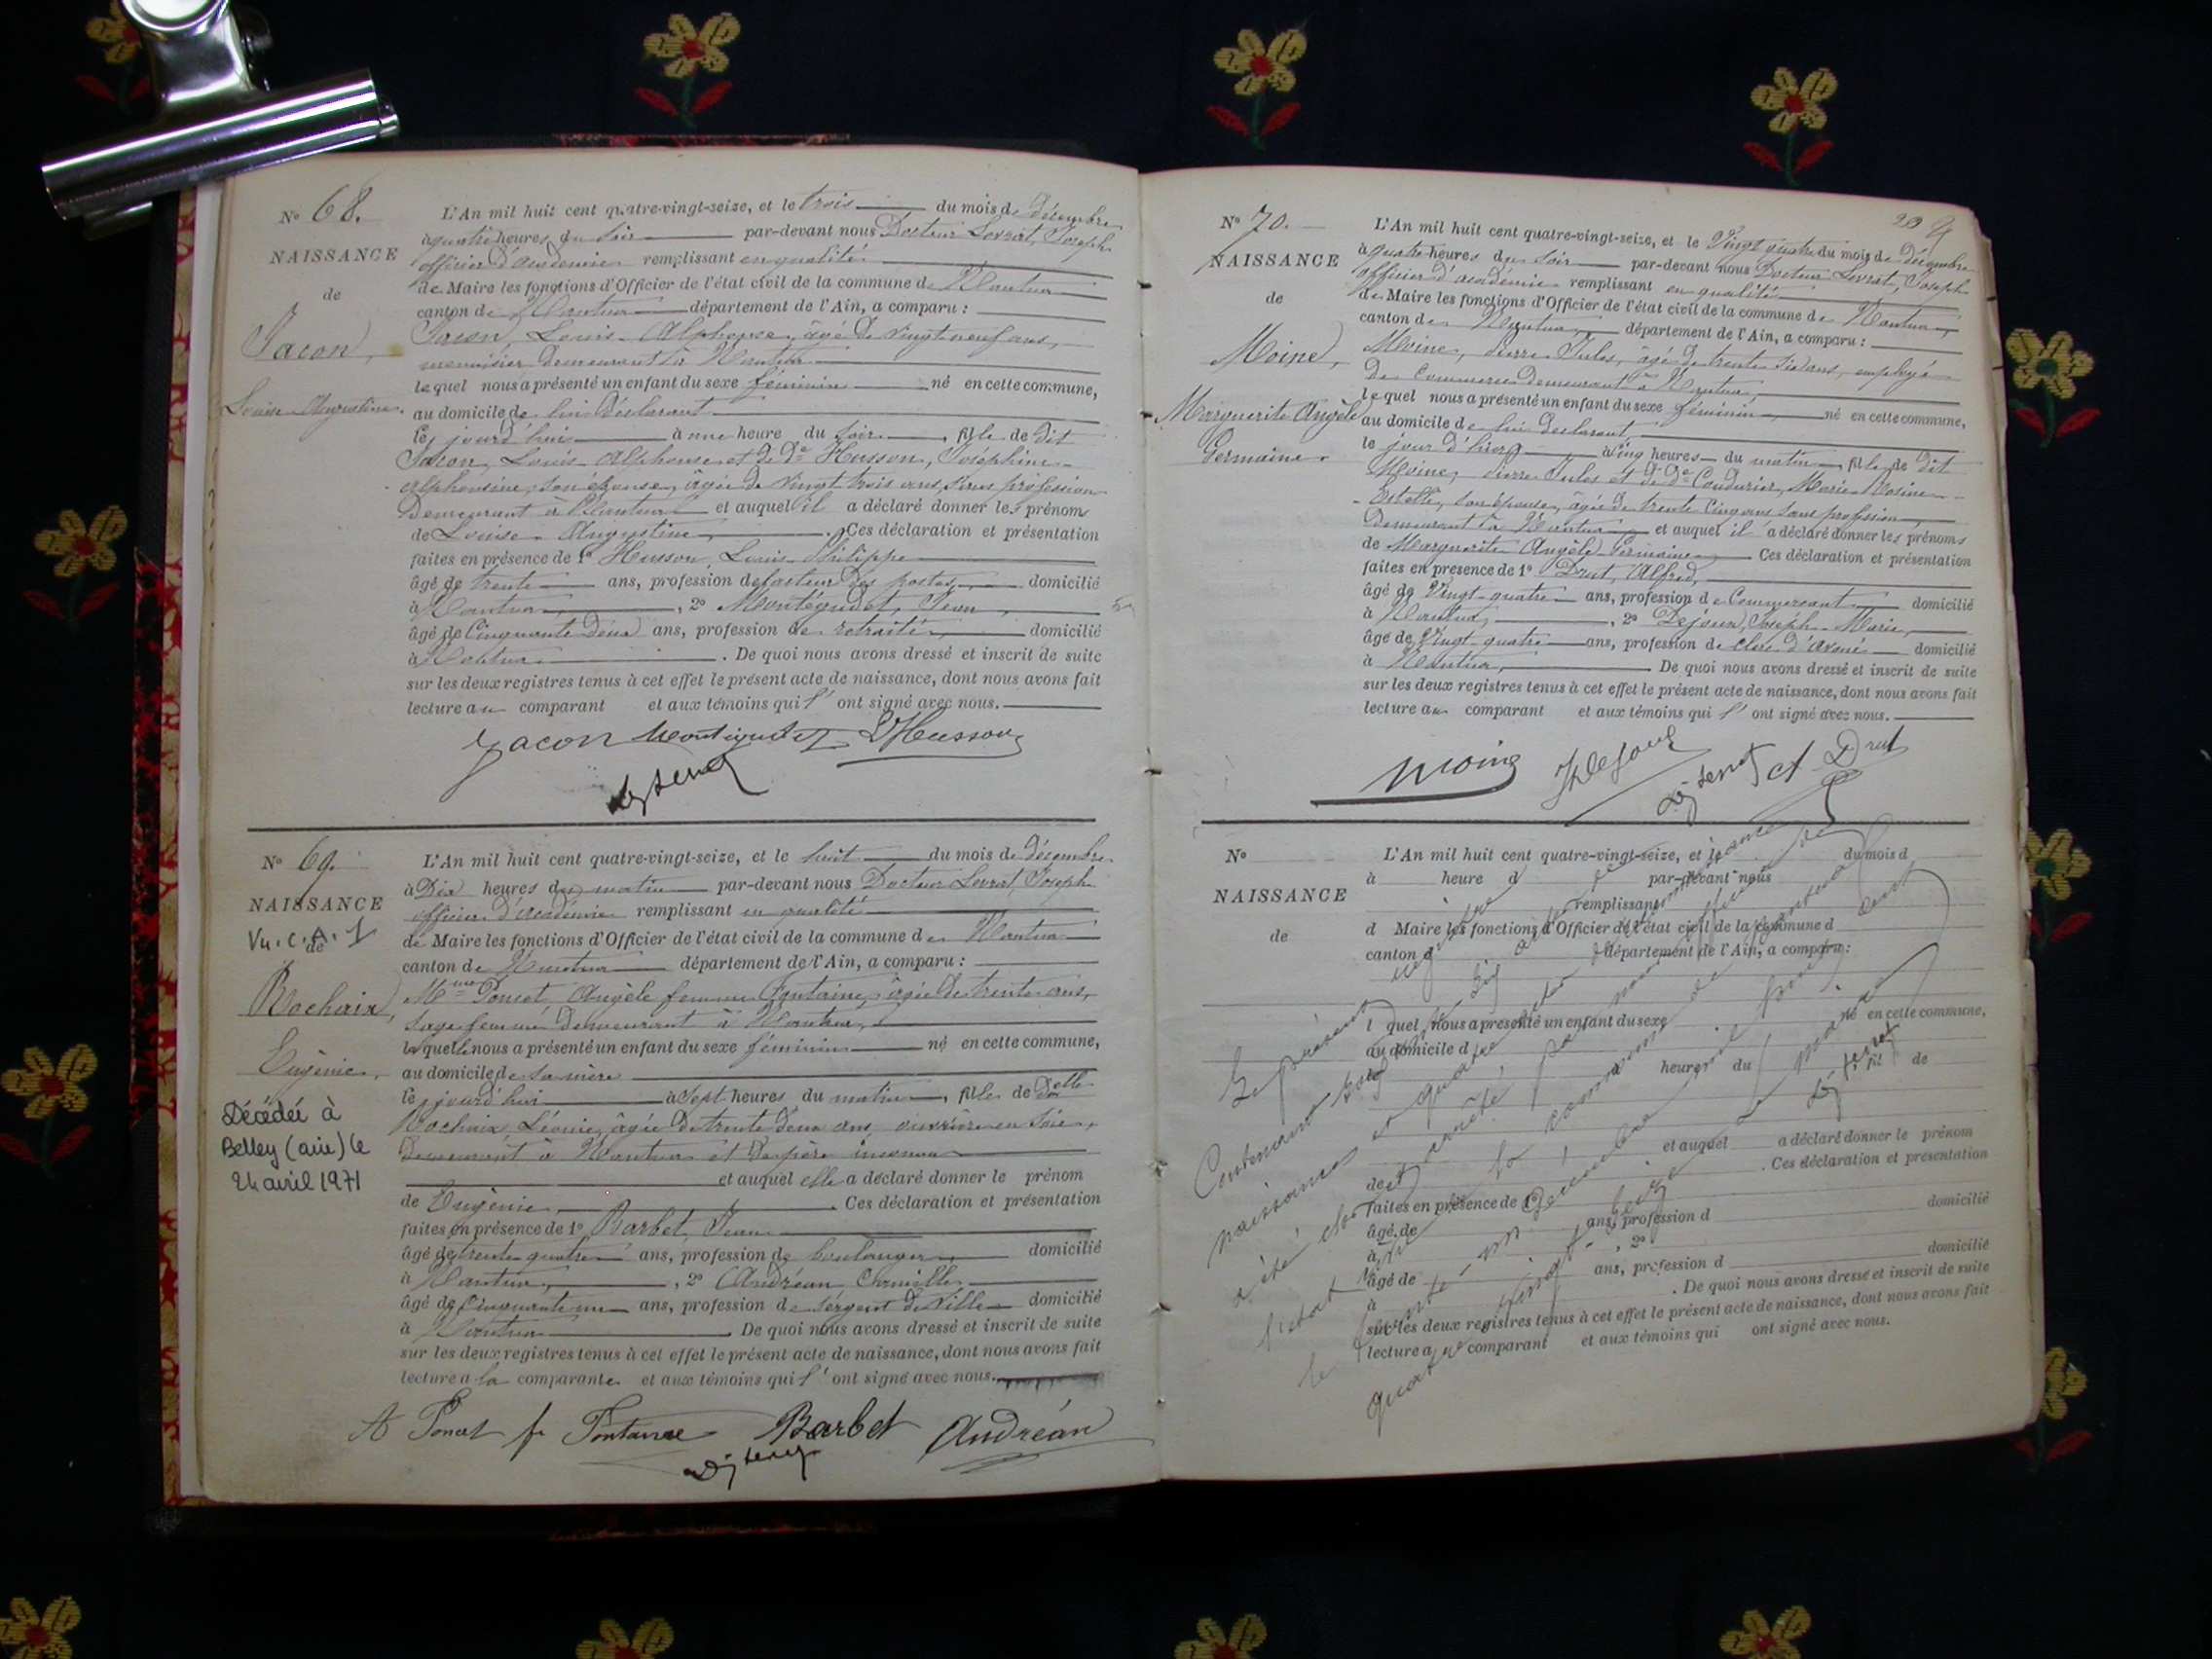 N° 68.
NAISSANCE
de
Jacon,
Louise Augustine.
L'An mil huit cent quatre-vingt-seize, et le trois du mois de Décembre
à quatre heures du soir par-devant nous Docteur Levrat, Joseph
officier d'académie remplissant en qualité
de Maire les fonctions d'Officier de l'état civil de la commune de Nantua
canton de Nantua département de l'Ain, a comparu :
Jacon, Louis Alphonse, âgé de vingt neuf ans,
menuisier demeurant à Nantua
lequel nous a présenté un enfant du sexe féminin né en cette commune,
au domicile de lui déclarant
le jourd'hui à une heure du soir, fille de dit
Jacon, Louis Alphonse et de De Husson, Joséphine
Alphonsine, son épouse, âgée de vingt trois ans, sans profession
Demeurant à Nantua et auquel il a déclaré donner les prénoms
de Louise Augustine. Ces déclaration et présentation
faites en présence de 1° Husson, Louis Philippe
âgé de trente ans, profession de facteur des postes, domicilié
à Nantua, 2° Montégudet, Jean,
âgé de Cinquante deux ans, profession de retraité, domicilié
à Nantua. De quoi nous avons dressé et inscrit de suite
sur les deux registres tenus à cet effet le présent acte de naissance, dont nous avons fait
lecture au comparant et aux témoins qui l'ont signé avec nous.
Jacon Montegudet LHusson
N° 69.
NAISSANCE
Vu. C. A. 1
de
Rochaix,
Eugénie.
Décédée à
Belley (ain) le
24 avril 1971
L'An mil huit cent quatre-vingt-seize, et le huit du mois de décembre
à Dix heures du matin par-devant nous Docteur Levrat, Joseph
officier d'académie remplissant en qualité
de Maire les fonctions d'Officier de l'état civil de la commune de Nantua
canton de Nantua département de l'Ain, a comparu :
Mme Poncet Angèle femme Fontaine, âgée de trente ans,
sage femme demeurant à Nantua,
laquelle nous a présenté un enfant du sexe féminin né en cette commune,
au domicile de sa mère
le jourd'hui à sept heures du matin, fille de Delle
Rochaix Léonie, âgée de trente deux ans, ouvrière en soie,
Demeurant à Nantua et de père inconnu
et auquel elle a déclaré donner le prénom
de Eugénie. Ces déclaration et présentation
faites en présence de 1° Barbet, Jean
âgé de trente quatre ans, profession de boulanger, domicilié
à Nantua, 2° Andréan, Camille,
âgé de Cinquante un ans, profession de sergent de ville domicilié
à Nantua. De quoi nous avons dressé et inscrit de suite
sur les deux registres tenus à cet effet le présent acte de naissance, dont nous avons fait
lecture a la comparante et aux témoins qui l'ont signé avec nous.
A Poncet fe Fontaine Barbet Andréan
N° 70.
NAISSANCE
de
Moine,
Marguerite Angèle
Germaine.
L'An mil huit cent quatre-vingt-seize, et le Vingt quatre du mois de Décembre
à quatre heures du soir par-devant nous Docteur Levrat, Joseph
officier d'académie remplissant en qualité
de Maire les fonctions d'Officier de l'état civil de la commune de Nantua,
canton de Nantua, département de l'Ain, a comparu :
Moine, Pierre Jules, âgé de trente six ans, employé
De Commerce demeurant à Nantua,
lequel nous a présenté un enfant du sexe féminin, né en cette commune,
au domicile de lui déclarant
le jour d'hier à cinq heures du matin, fille de dit
Moine, Pierre Jules et de De Coudurier, Marie Rosine
Estelle, son épouse, âgée de trente cinq ans sans profession,
demeurant à Nantua et auquel il a déclaré donner les prénoms
de Marguerite Angèle Germaine Ces déclaration et présentation
faites en présence de 1° Drut, Alfred,
âgé de Vingt quatre ans, profession de Commerçant domicilié
à Nantua, 2° Dejoux, Joseph Marie,
âgé de Vingt quatre ans, profession de clerc d'avoué domicilié
à Nantua, De quoi nous avons dressé et inscrit de suite
sur les deux registres tenus à cet effet le présent acte de naissance, dont nous avons fait
lecture au comparant et aux témoins qui l'ont signé avec nous.
Moine A Drut
N°
NAISSANCE
de
L'An mil huit cent quatre-vingt-seize, et le du mois d
à heure d par-devant nous
remplissant
d Maire les fonctions d'Officier de l'état civil de la commune d
canton d département de l'Ain, a comparu :
l quel nous a présenté un enfant du sexe né en cette commune,
au domicile d
heure du fil de
et auquel a déclaré donner le prénom
de . Ces déclaration et présentation
faites en présence de 1°
âgé de ans, profession d domicilié
à , 2°
âgé de ans, profession d domicilié
à . De quoi nous avons dressé et inscrit de suite
sur les deux registres tenus à cet effet le présent acte de naissance, dont nous avons fait
lecture a comparant et aux témoins qui ont signé avec nous.
Le présent registre
Contenant soixante dix actes de
naissances et quatre
a été clos et arrêté par nous officier de
l'état civil de la commune de Nantua
le trente-un Décembre mil huit cent
quatre vingt-seize